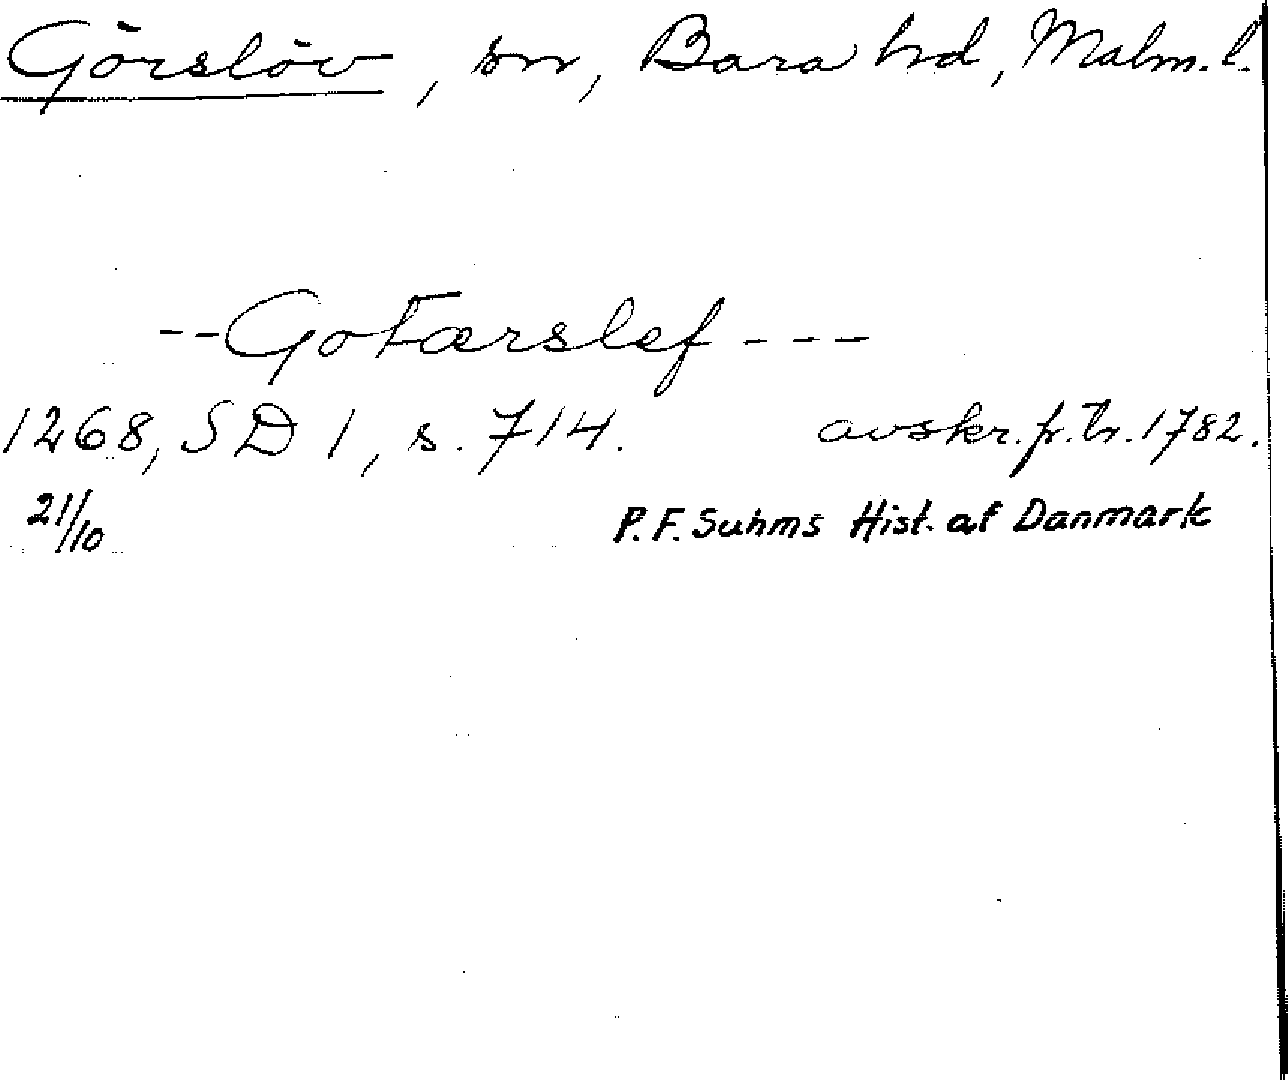 Görslöv, sn, Bara hd, Malm. l.
--Gotærslef---
1268, SD 1, s. 714. avskr. fr. tr. 1782.
21/10 P. F. Suhms Hist. af Danmark